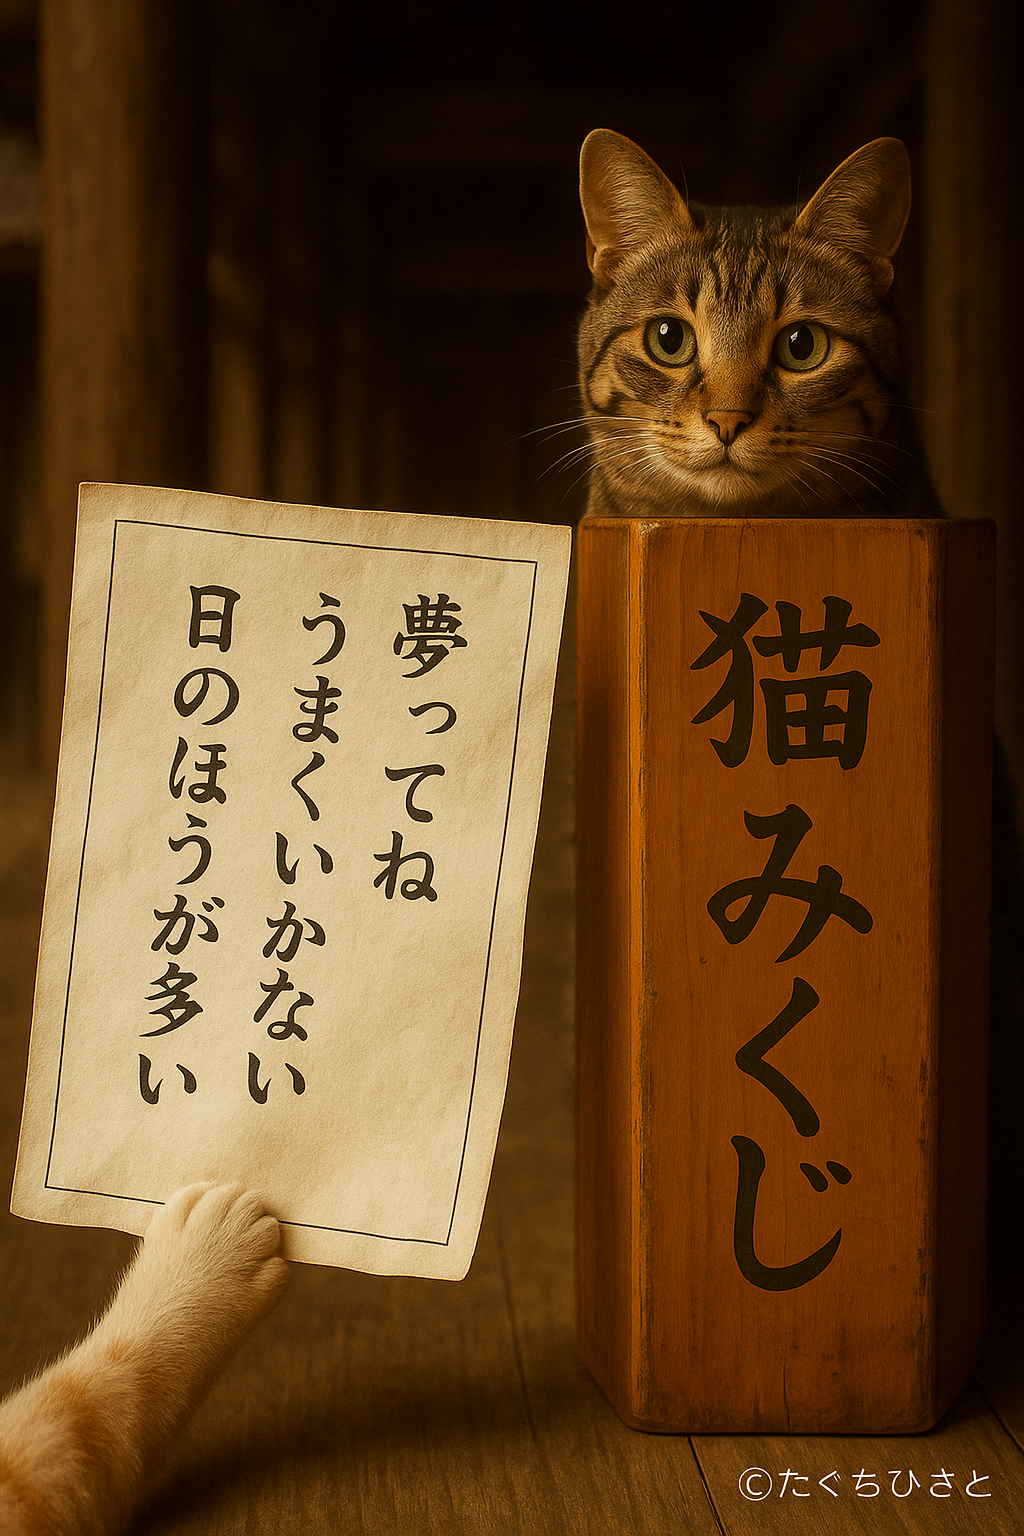 夢ってね
うまくいかない
日のほうが多い
猫みくじ
©たぐちひさと